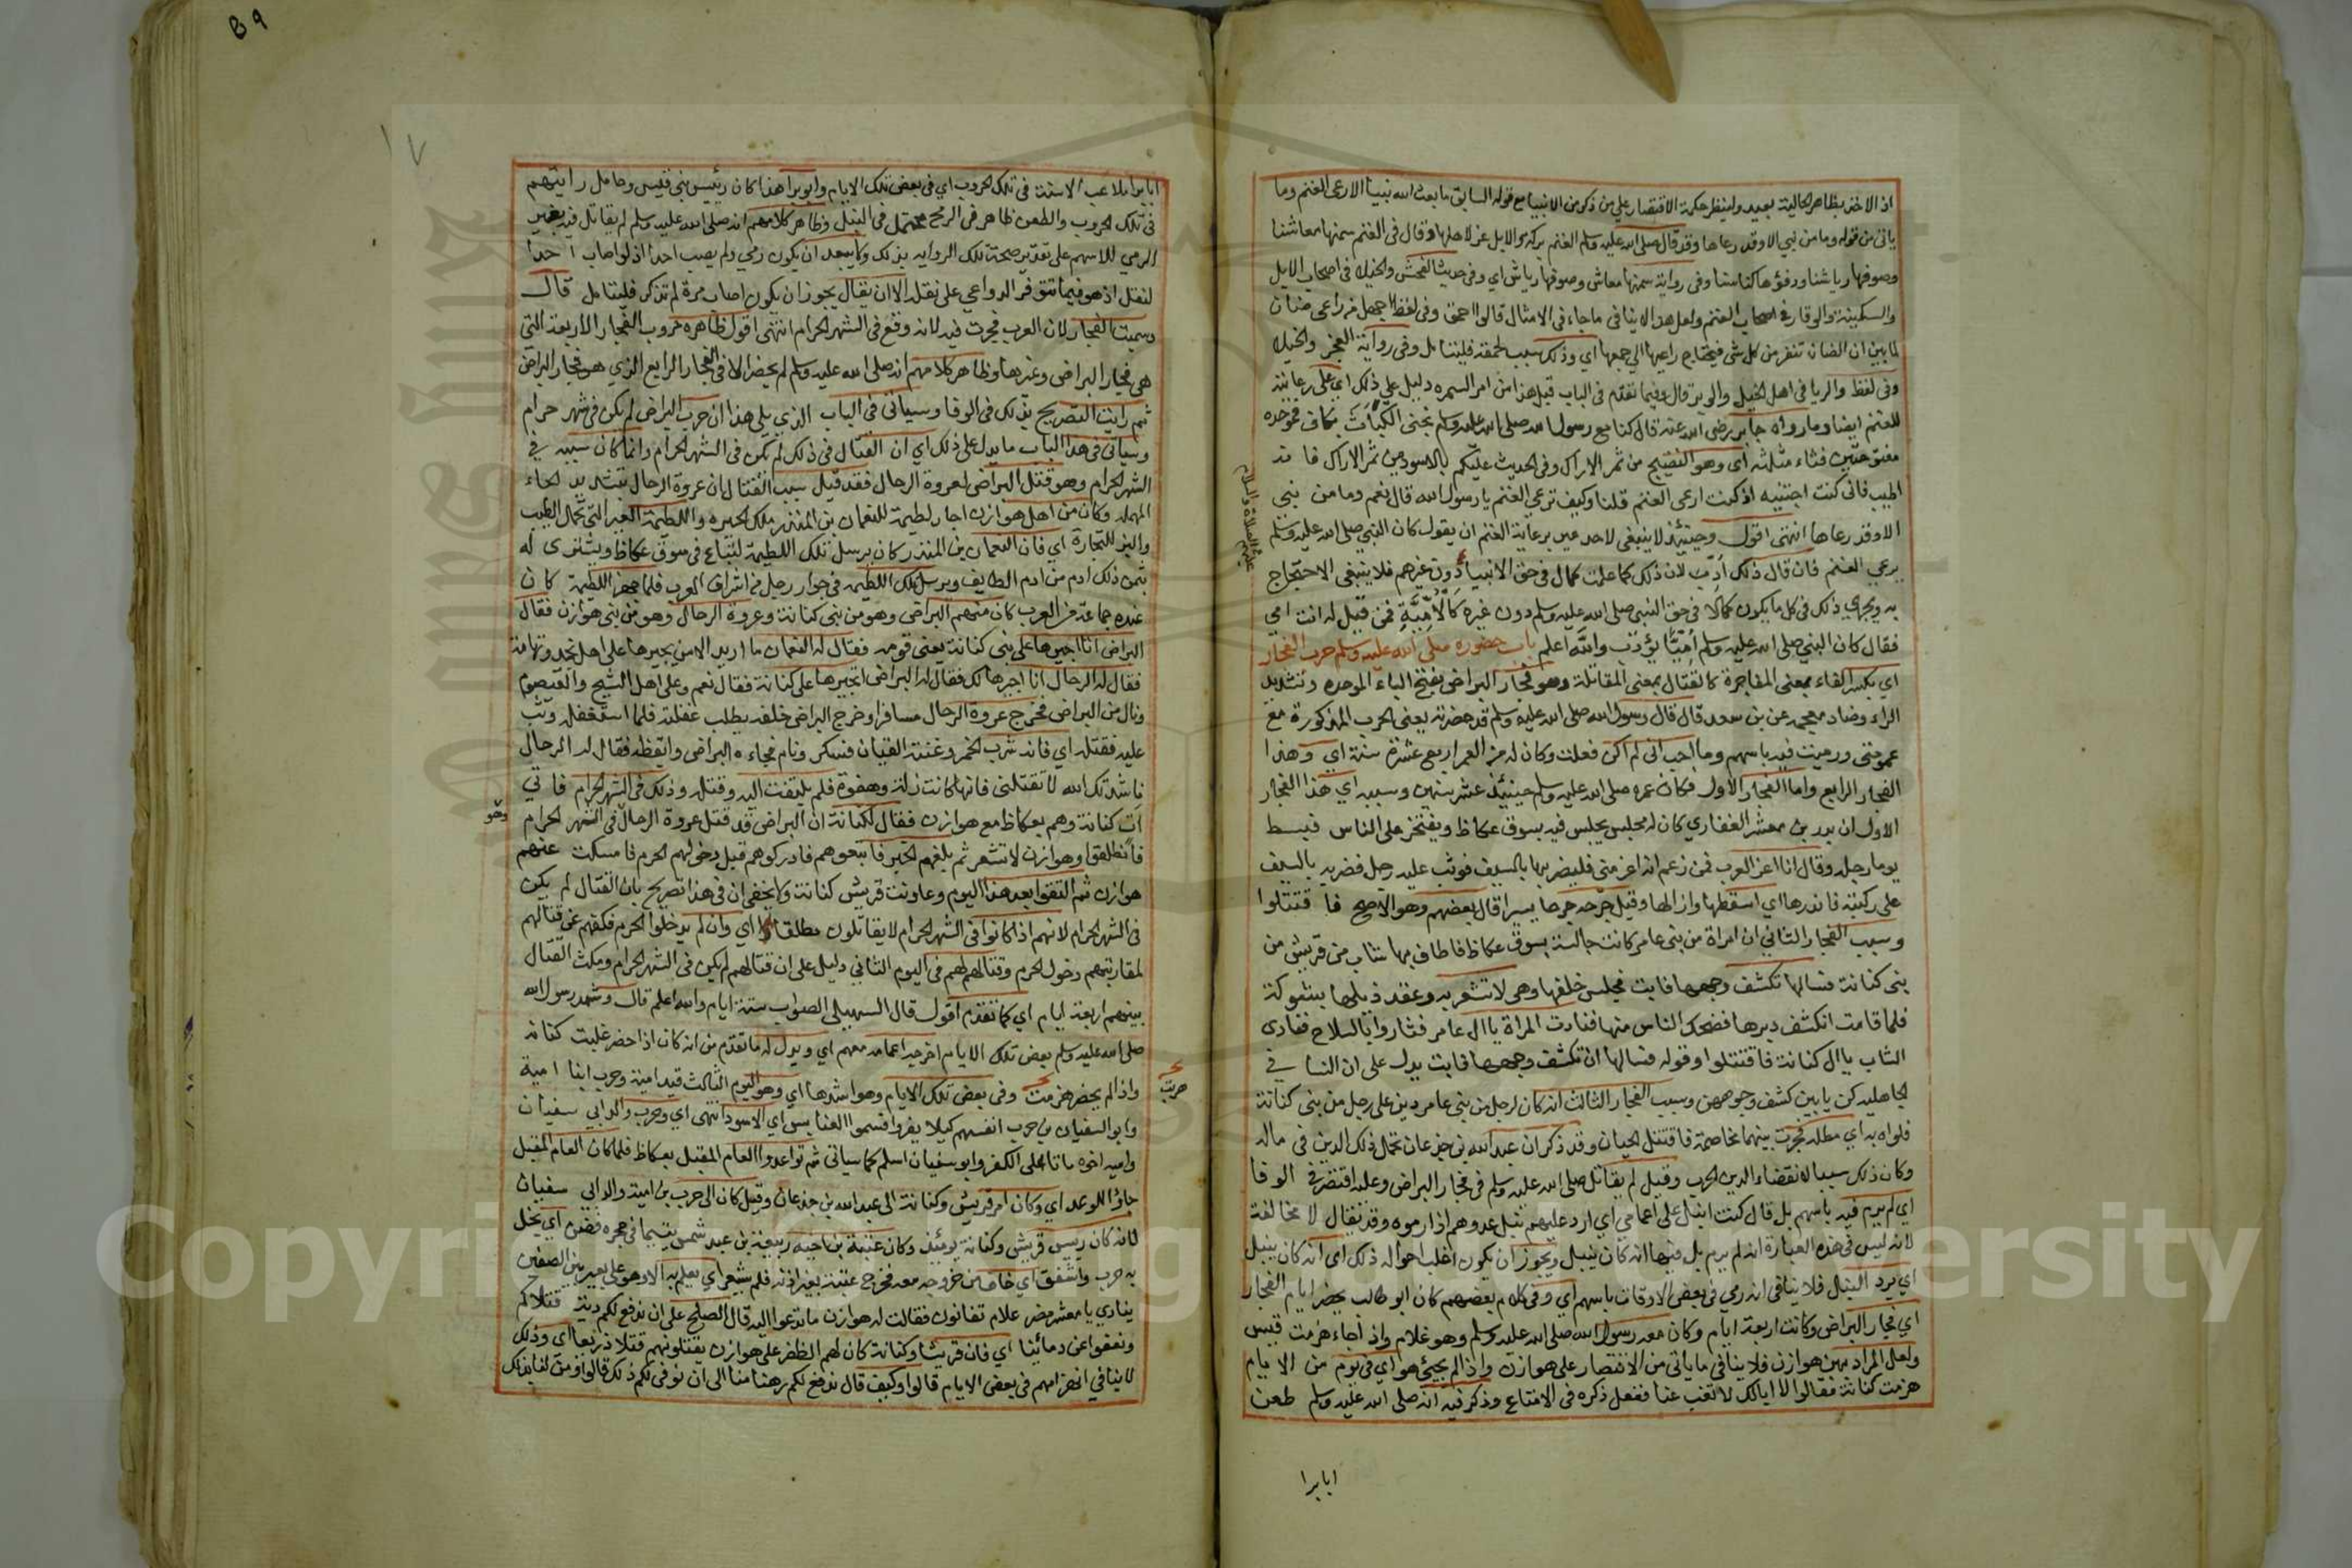 اذ الاخذ بظاهر الحالية بعيد ولينظر حكمة الاقتصار علي من ذكر من الانبيا مع قوله السابق ما بعث الله نبيا الا رعى الغنم وما
ياتى من قوله وما من نبي الا وقد رعاها وقد قال صلى الله عليه وسلم الغنم بركة والابل عز لاهلها وقال فى الغنم سمنها معاشنا
وصوفها رياشنا ودفؤها كساؤنا وفى رواية سمنها معاش وصوفها رياش اي وفى حديث الفحش والخيلا فى اصحاب الابل
والسكينة والوقار فى اصحاب الغنم ولعل هذا لا ينافى ما جاء فى الامثال قالوا احمق وفى لفظ اجهل من راعى ضان
لما بين ان الضان تنفر من كل شى فيحتاج راعيها الي جمعها اي وذلك سبب لحمقه فليتامل وفى رواية الفخر والخيلا
وفى لفظ والريا فى اهل الخيل والوبر قال وفيما تقدم فى الباب قبل هذا من امر السمره دليل علي ذلك اي على رعايته
للغنم ايضا وما رواه جابر رضى الله عنه قال كنا مع رسول الله صلى الله عليه وسلم نجنى الكباث بكاف فموحده
مفتوحتين فثاء مثلثه اى وهو النضيج من ثمر الاراك وفى الحديث عليكم بالاسود من ثمر الاراك فانه
اطيب فانى كنت اجتنيه اذ كنت ارعى الغنم قلنا وكيف ترعي الغنم يا رسول الله قال نعم وما من نبي
الا وقد رعاها انتهى اقول وحينئذ لا ينبغى لاحد عير برعاية الغنم ان يقول كان النبي صلى الله عليه وسلم
يرعي الغنم فان قال ذلك ادب لان ذلك كما علمت كمال فى حق الانبيا دون غيرهم فلا ينبغى الاحتجاج
عليهم الصلاة والسلام
به ويجري ذلك فى كل ما يكون كمالا فى حق النبى صلى الله عليه وسلم دون غيره كالامية فمن قيل له انت امي
فقال كان النبي صلى الله عليه وسلم اميا يؤدب والله اعلم باب حضوره صلى الله عليه وسلم حرب الفجار
اي بكسر الفاء بمعنى المفاجرة كالقتال بمعنى المقاتلة وهو فجار البراض بفتح الباء الموحده وتشديد
الراء وضاد معجمه عن بن سعد قال قال رسول الله صلى الله عليه وسلم قد حضرته يعنى الحرب المذكورة مع
عمومتى ورميت فيه باسهم وما احب انى لم اكن فعلت وكان له من العمر اربع عشرة سنة اي وهذا
الفجار الرابع واما الفجار الاول فكان عمره صلى الله عليه وسلم حينئذ عشر سنين وسببه اي هذا الفجار
الاول ان بدر بن معشر الغفاري كان له مجلس يجلس فيه بسوق عكاظ ويفتخر على الناس فبسط
يوما رجله وقال انا اعز العرب فمن زعم انه اعز منى فليضربها بالسيف فوثب عليه رجل فضربه بالسيف
على ركبته فاندرها اي اسقطها وازالها وقيل جرحه جرحا يسيرا قال بعضهم وهو الاصح فاقتتلوا
وسبب الفجار الثاني ان امراة من بنى عامر كانت جالسة بسوق عكاظ فاطاف بها شاب من قريش من
بنى كنانة فسالها تكشف وجهها فابت فجلس خلفها وهى لا تشعر به وعقد ذيلها بشوكة
فلما قامت انكشف دبرها فضحك الناس منها فنادت المراة يا ال عامر فثاروا بالسلاح فنادى
الشاب يا ال كنانة فاقتتلوا وقوله فسالها ان تكشف وجهها فابت يدل على ان النسا في
الجاهليه كن يابين كشف وجوههن وسبب الفجار الثالث انه كان لرجل من بني عامر دين على رجل من بنى كنانة
فلواه به اي مطله فجرت بينهما مخاصمة فاقتتل الحيان وقد ذكر ان عبد الله بن جدعان تحمل ذلك الدين في ماله
وكان ذلك سببا لانقضاء الدين الحرب وقيل لم يقاتل صلى الله عليه وسلم فى فجار البراض وعليه اقتصر فى الوفا
اي لم يرم فيه باسهم بل قال كنت انبل على اعمامي اي ارد عليهم نبل عدوهم اذا رموه وقد يقال لا مخالفة
لانه ليس فى هذه العبارة انه لم يرم بل فيها انه كان ينبل ويجوز ان يكون اغلب احواله ذلك اى انه كان ينبل
اي يرد النبل فلا ينافى انه رمي فى بعض الاوقات باسهم اي وفى كلام بعضهم كان ابو طالب يحضر ايام الفجار
اي فجار البراض وكانت اربعة ايام وكان معه رسول الله صلى الله عليه وسلم وهو غلام واذا جاء هزمت قيس
ولعل المراد بهن هوازن فلا ينافي ما ياتى من الانتصار على هوازن واذا لم يجئ هو اي فى يوم من الايام
هزمت كنانة فقالوا لا ابا لك لا تغب عنا ففعل ذكره فى الامتاع وذكر فيه انه صلى الله عليه وسلم طعن
ابا برا
ابا برا ملاعب الاسنة فى تلك الحروب اي فى بعض تلك الايام وابو برا هذا كان رئيس بنى قيس وحامل رايتهم
فى تلك الحروب والطعن ظاهر فى الرمح محتمل فى النبل وظاهر كلامهم انه صلى الله عليه وسلم لم يقاتل فيه بغير
الرمي للاسهم على تقدير صحة تلك الروايه بذلك ولا يبعد ان يكون رمي ولم يصب احدا اذ لو اصاب احدا
لنقل اذ هو فيما تتوفر الدواعي على نقله الا ان يقال يجوز ان يكون اصاب مرة لم تذكر فليتامل قال
وسميت الفجار لان العرب فجرت فيه لانه وقع فى الشهر الحرام انتهى اقول ظاهره حروب الفجار الاربعة التى
هى فجار البراض وغيرها وظاهر كلامهم انه صلى الله عليه وسلم لم يحضر الا فى الفجار الرابع الذى هو فجار البراض
ثم رايت التصريح بذلك فى الوفا وسياتى فى الباب الذي يلى هذا ان حرب البراض لم يكن فى شهر حرام
وسياتى فى هذا الباب ما يدل على ذلك اي ان القتال فى ذلك لم يكن فى الشهر الحرام وانما كان سببه في
الشهر الحرام وهو قتل البراض لعروة الرحال فقد قيل سبب القتال ان عروة الرحال بتشديد الحاء
المهمله وكان من اهل هوازن اجار لطيمة للنعمان بن المنذر ملك الحيره واللطيمة العير التى تحمل الطيب
والبز للتجارة اي فان النعمان بن المنذر كان يرسل تلك اللطيمة لتباع فى سوق عكاظ ويشترى له
بثمن ذلك ادم من ادم الطايف ويرسل تلك اللطيمه فى جوار رجل من اشراف العرب فلما جهز اللطيمة كان
عنده جماعة من العرب كان منهم البراض وهو من بنى كنانة وعروة الرحال وهو من بنى هوازن فقال
البراض انا اجيرها على بنى كنانة يعنى قومه فقال له النعمان ما اريد الا من يجيرها على اهل نجد وتهامة
فقال له الرحال انا اجيرها لك فقال له البراض اتجيرها على كنانة فقال نعم وعلى اهل الشيح والقيصوم
ونال من البراض فخرج عروة الرحال مسافرا وخرج البراض خلفه يطلب غفلته فلما استغفله وثب
عليه فقتله اي فانه شرب الخمر وغنته القيان فسكر ونام فجاءه البراض وايقظه فقال له الرحال
ناشدتك الله لا تقتلنى فانها كانت زلة وهفوة فلم يلتفت اليه وقتله وذلك فى الشهر الحرام فاتي
ات كنانة وهم بعكاظ مع هوازن فقال لكنانة ان البراض قد قتل عروة الرحال فى الشهر الحرام
وهو
فانطلقوا وهوازن لا تشعر ثم بلغهم الخبر فاتبعوهم فادركوهم قبل دخولهم الحرم فامسكت عنهم
هوازن ثم التقوا بعد هذا اليوم وعاونت قريش كنانة ولا يخفى ان في هذا تصريح بان القتال لم يكن
فى الشهر الحرام لانهم اذا كانوا فى الشهر الحرام لا يقاتلون مطلقا اي وان لم يدخلوا الحرم فكفهم عن قتالهم
لمقاربتهم دخول الحرم وقتالهم لهم فى اليوم الثاني دليل على ان قتالهم لم يكن فى الشهر الحرام ومكث القتال
بينهم اربعة ايام اي كما تقدم اقول قال السهيلى الصواب ستة ايام والله اعلم قال وشهد رسول الله
صلى الله عليه وسلم بعض تلك الايام اخرجه اعمامه معهم اي ويدل له ما تقدم من انه كان اذا حضر غلبت كنانه
واذا لم يحضر هزمت وفى بعض تلك الايام وهو اشدها اي وهو اليوم الثالث قيد امية وحرب ابنا امية
حرب
وابو السفيان بن حرب انفسهم كيلا يفروا فسموا العنابس اي الاسود انتهى اي وحرب والد ابي سفيان
وامية اخوه ماتا على الكفر وابو سفيان اسلم كما سياتى ثم تواعدوا العام المقبل بعكاظ فلما كان العام المقبل
جاؤا للوعد اي وكان امر قريش وكنانة الى عبد الله بن جدعان وقيل كان الى حرب بن امية والد ابي سفيان
لانه كان رئيس قريش وكنانة يومئذ وكان عتبة بن اخيه ربيعة بن عبد شمس يتيما فى حجره فضن اي بخل
به حرب واشفق اي خاف من خروجه معه فخرج عتبة بغير اذنه فلم يشعر اي يعلم به الا وهو على بعير بين الصفين
ينادي يا معشر مضر علام تفانون فقالت له هوازن ما تدعوا اليه قال الصلح على ان ندفع لكم دية قتلاكم
ونعفوا عن دمائنا اي فان قريشا وكنانة كان لهم الظفر على هوازن يقتلونهم قتلا ذريعا اى وذلك
لا ينافي انهزامهم فى بعض الايام قالوا وكيف قال ندفع لكم رهنا منا الى ان نوفى لكم ذلك قالوا ومن لنا بذلك
١٧
89
Copyright © King Saud University